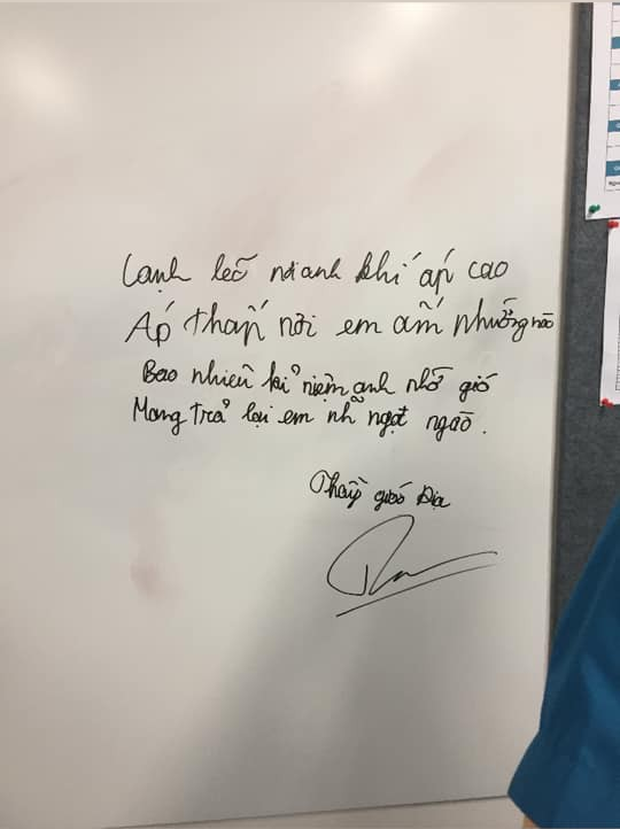 Lạnh lẽo nơi anh khí áp cao
Áp thấp nơi em ấm nhường nào
Bao nhiêu kỉ niệm anh nhờ gió
Mang trả lại em nhẽ ngọt ngào.
Thầy giáo Địa